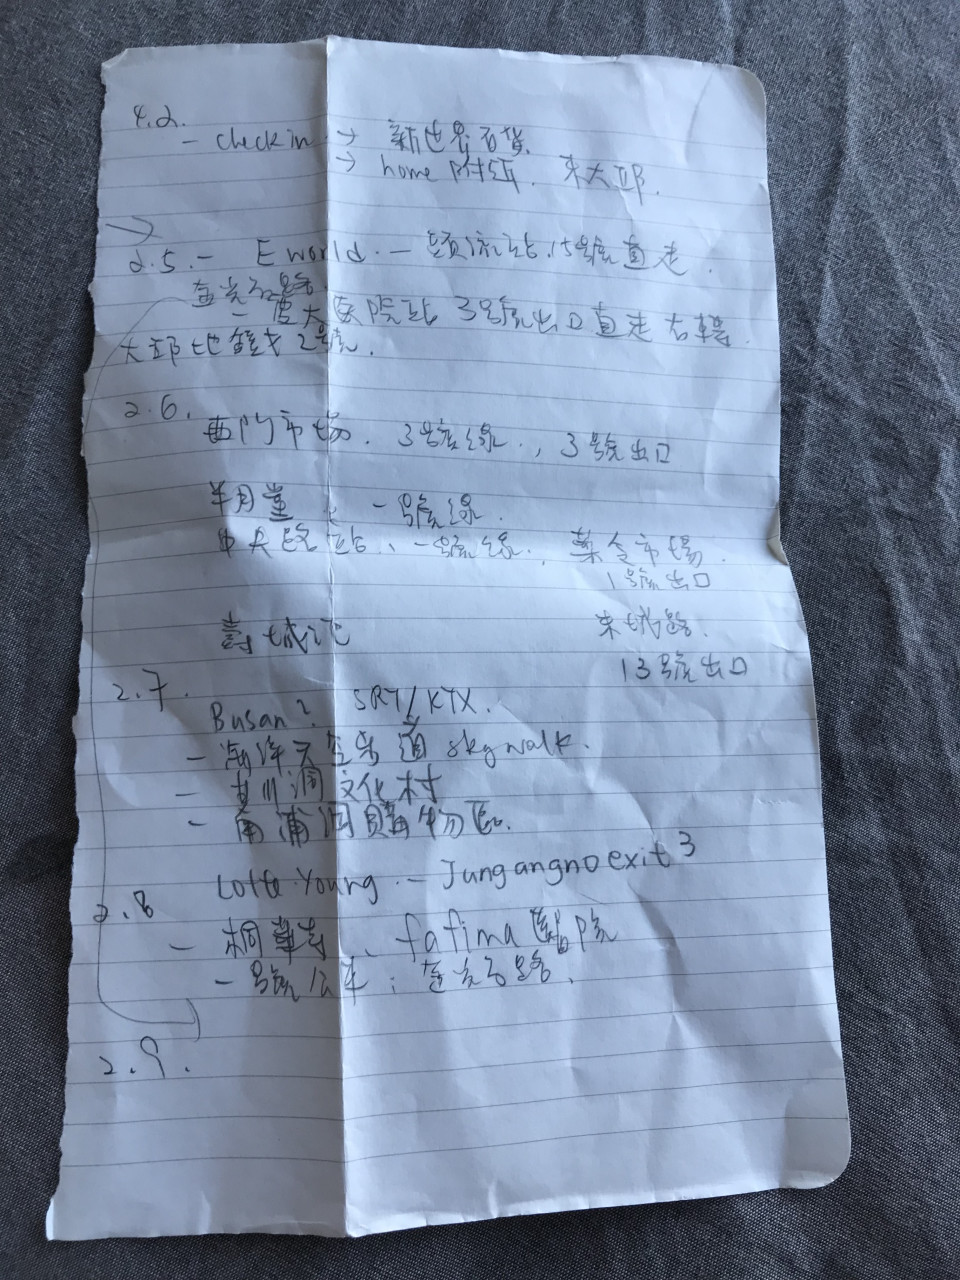 4.2.
- check in → 新世界百貨
→ home 附近. 東大邱.
2.5. - E world. - 頭流站.15號直走.
金光石路.
- 慶大医院站 3號出口直走右轉.
大邱地鐵 2號.
2.6.
西門市場. 3號線., 3號出口
半月堂、一號線.
中央路站、一號線. 藥令市場.
1號出口
壽城池 東城路.
13號出口
2.7.
Busan? SRT/KTX.
- 海洋天空步道 skywalk.
- 甘川洞文化村
- 南浦洞購物區.
Lotte Young - Jungangno exit 3
2.8
- 桐華寺、fatima 醫院
- 1號公車; 金光石路.
2.9.